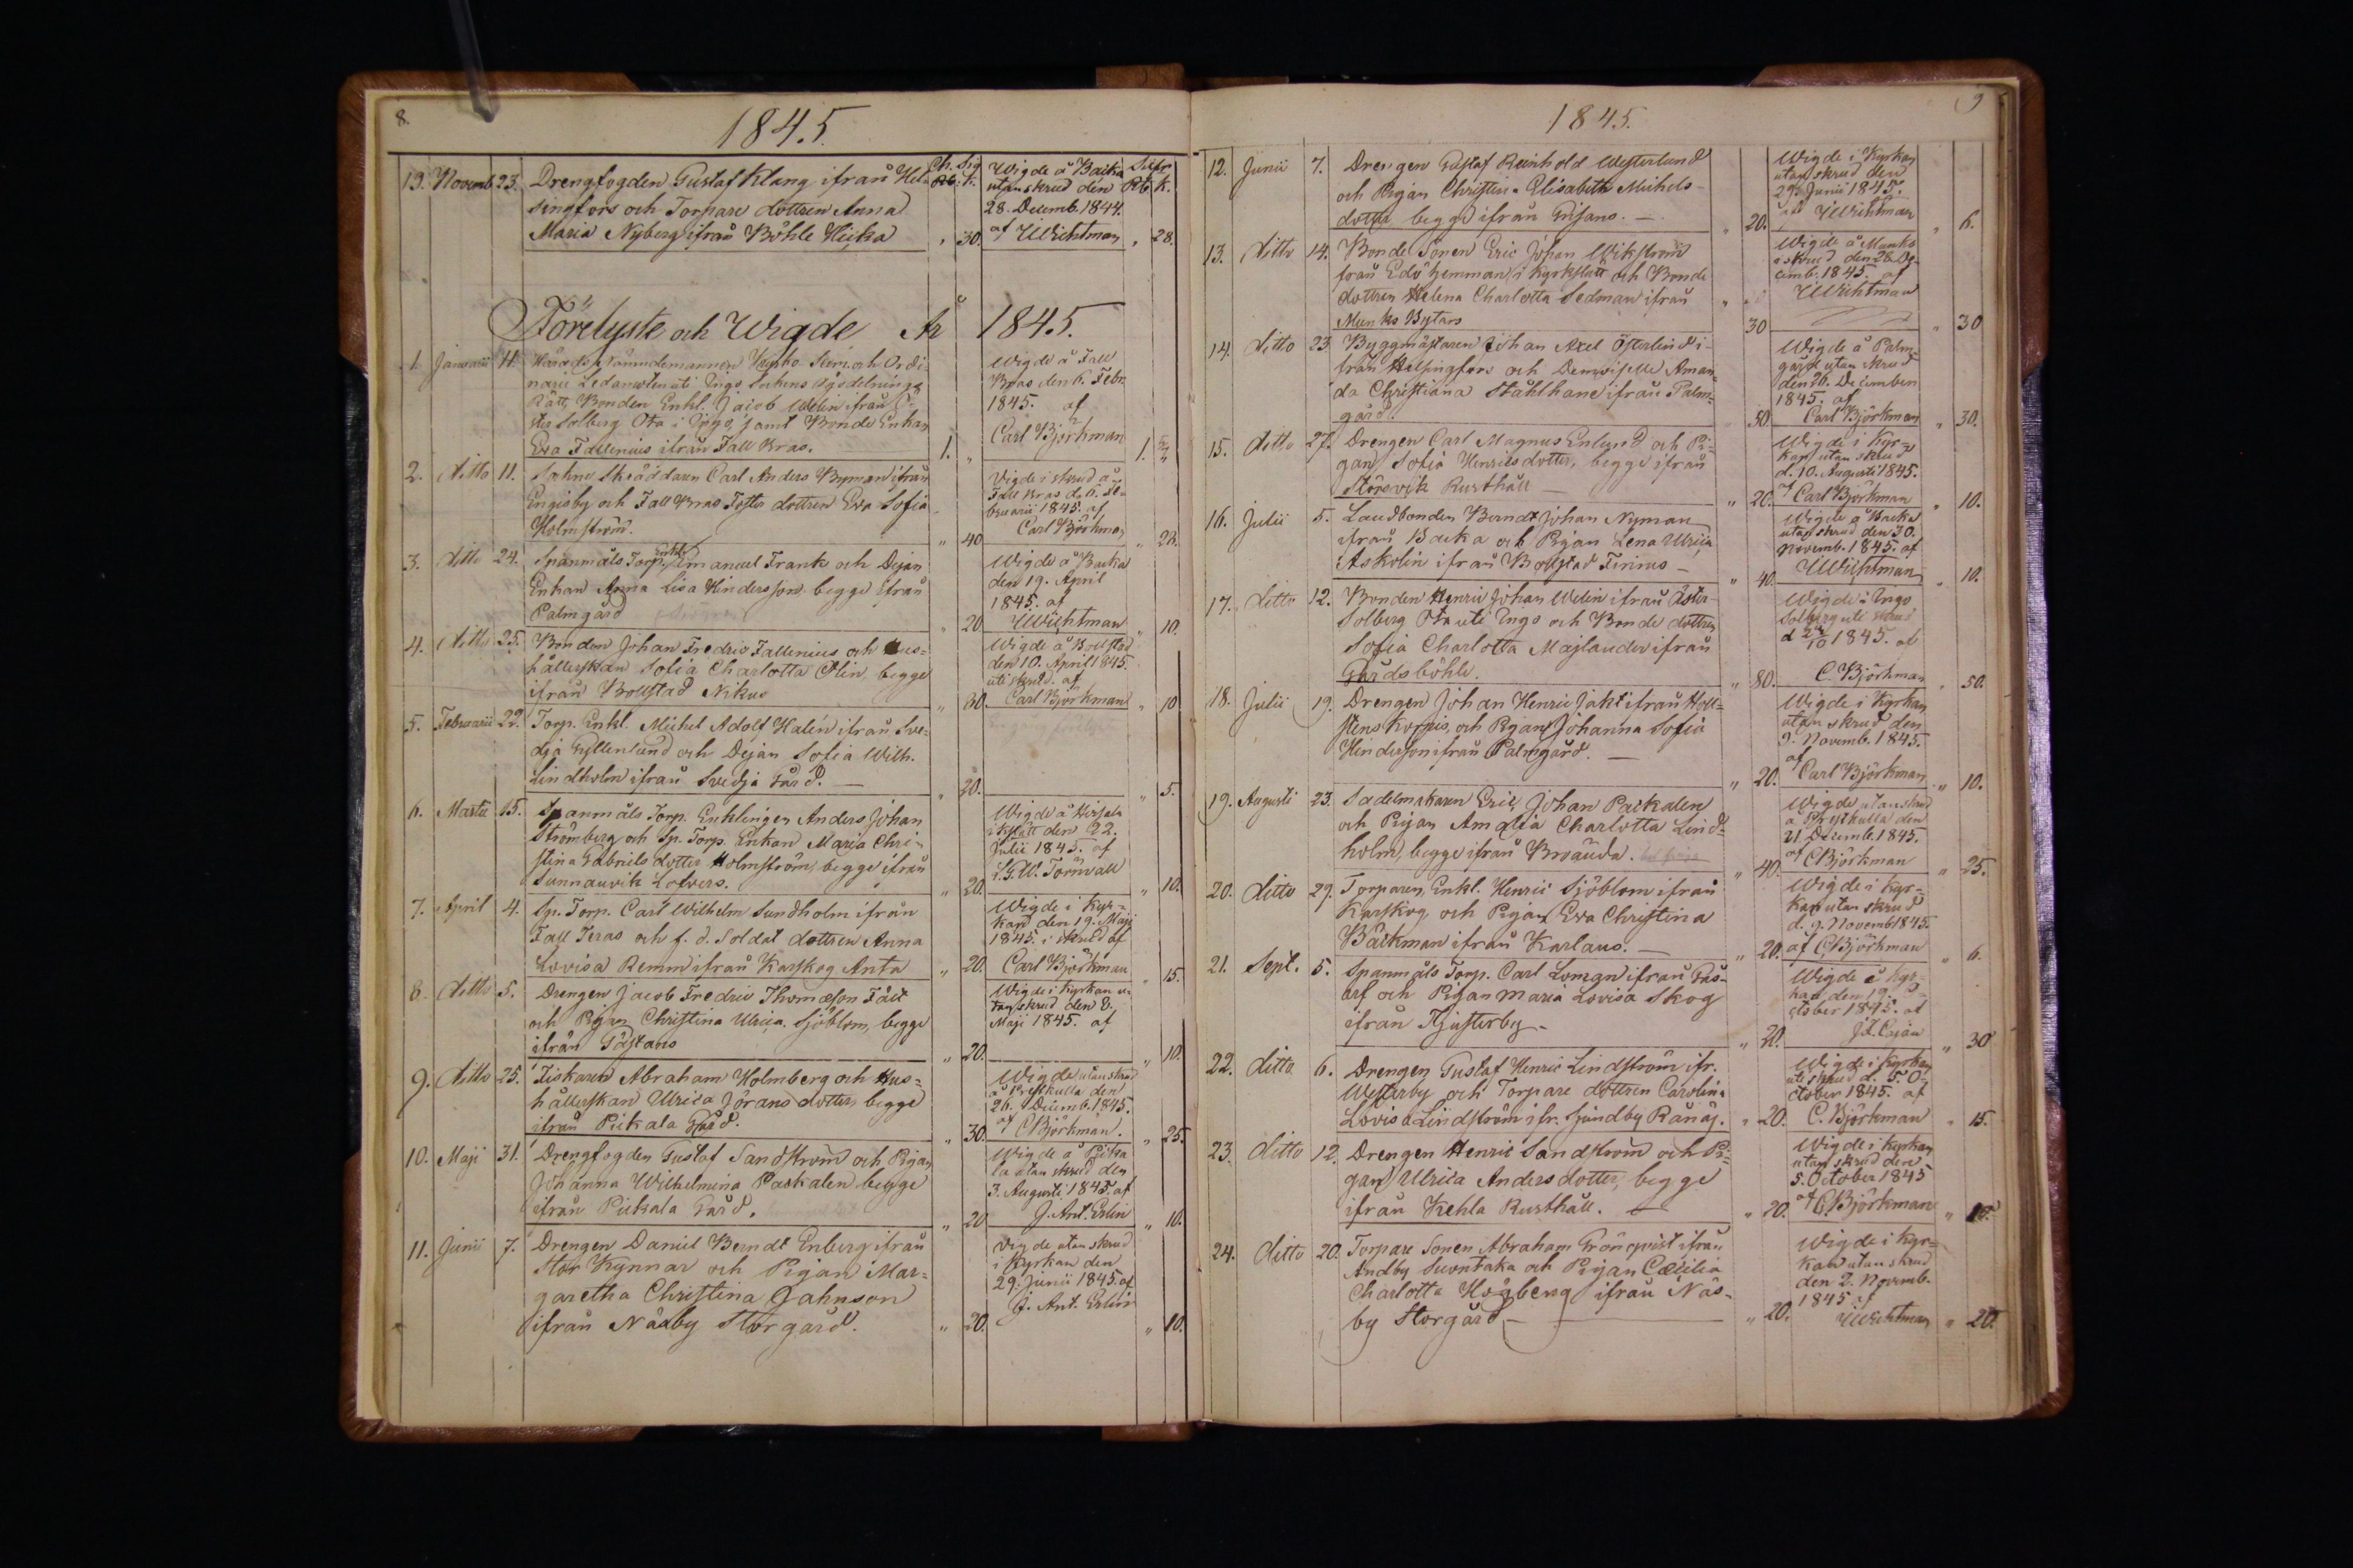 8.
1845.
19. Novemb. 23. Drengfogden Gustaf Klang ifrån Hel-
singfors och Torpare dottren Anna
Maria Nyberg ifrån Böhle Heika " 30.
Wigde å Backa
utan skrud den
28. Decemb. 1844.
af Wichtman " 28.
Förelyste och Wigde År 1845.
1. Januarii 11.
Rätt, Bonden Enkl. Jacob Welin ifrån
Solberg Ota i Ingo, samt Bonde Enkan
Eva Fallenius ifrån Fall Bras. 1. "
Wigde å Fall
Bras den 6. Febr.
1845. af
Carl Björkman 1.
2. ditto 11. Carl Anders Byman ifrån
Engisby och Fall Bras Foster dottren Eva Sofia
Holmström. " 40
Vigde i skrud å
Fall Bras d. 6. Fe-
bruarii 1845. af
Carl Björkman " 28.
3. ditto 24. Spanmåls Torp. Enkl. Emanuel Frank och Pigan
Enkan Anna Lisa Hindersson begge ifrån
Palmgård " 20
Wigde å Backa
den 19. April
1845. af
Wichtman " 10.
4. ditto 25. Bonden Johan Fredric Fallenius och Hus-
hållerskan Sofia Charlotta Flin, begge
ifrån Bollstad Nikus " 30.
Wigde å Bollstad
den 10. April 1845.
uti skrud. af
Carl Björkman " 10
5. Februarii 22. Torp. Enkl. Michel Adolf Halén ifrån Sve-
djä Gyllenlund och Pigan Sofia Wilh.
Lindholm ifrån Svedja Gård. — " 20. " 5.
6. Martii 15. Spanmåls Torp. Enklingen Anders Johan
Strömberg och Sp. Torp. Enkan Maria Chri-
stina Gabriels dotter Holmström, begge ifrån
Sunnanvik Lofvers. " 20.
Wigde å Hirsala
den 22.
Julii 1845. af
L.G.W. Törnvall " 10.
7. April 4. Sp. Torp. Carl Wilhelm Sundholm ifrån
Fall Jeras och f. d. Soldat dottren Anna
Lovisa Remm ifrån Karskog Anta " 20.
Wigde i Kyr-
kan den 19. Maji
1845. i skrud af
Carl Björkman " 15.
8. ditto 5. Drengen Jacob Fredric Thomæson Fält
och Pigan Christina Ulrica Sjöblom, begge
ifrån Gästans " 20.
Wigde i Kyrkan u-
tan skrud den 8.
Maji 1845. af " 10.
9. ditto 25. Fiskaren Abraham Holmberg och Hus-
hållerskan Ulrica Jörans dotter, begge
ifrån Pickala Gård. " 30.
Wigde utan skrud
å Prestkulla den
26. Decemb. 1845.
af C Björkman. " 25.
10. Maji 31. Drengfogden Gustaf Sandström och Pigan
Johanna Wilhelmina Packalen begge
ifrån Pickala Gård. " 20
Wigde å Picka
la utan skrud den
3. Augusti 1845. af
J. Ant. Erlin " 10.
11. Junii 7. Drengen Daniel Berndt Enberg ifrån
Stor Kynnar och Pigan Mar-
garetha Christina Jahnson
ifrån Näsby Storgård. " 20.
Vigde utan skrud
i Kyrkan den
29. Junii 1845. af
J. Ant. Erlin " 10.
9
1845.
12. Junii 7. Drengen Gustaf Reinhold Westerlund
och Pigan Christina Elisabeth Michels-
dotter begge ifrån Grisans. — " 20.
Wigde i Kyrkan
utan skrud den
29. Junii 1845.
af Wichtman " 6.
13. ditto 14. Bonde Sonen Eric Johan Wikström
från Edö hemman i Kyrkslätt och Bonde
dottren Helena Charlotta Sedman ifrån
Munks Bytars " 30
Wigde å Munks
i skrud den 26. De-
cemb. 1845. af
Wichtman " 30
14. ditto 23. Byggmästaren Johan Axel Österlind i-
från Helsingfors och Demoiselle Aman-
da Christiana Stålhane ifrån Palm-
gård. " 50
Wigde å Palm-
gård utan skrud
den 26. December
1845. af
Carl Björkman " 30.
15. ditto 27. Drengen Carl Magnus Enlund och Pi-
gan Sofia Henricsdotter, begge ifrån
Störsvik Rusthåll — " 20.
Wigde i Kyr-
kan utan skrud
d. 10. Augusti 1845.
af Carl Björkman " 10.
16. Julii 5. Landbonden Berndt Johan Nyman
ifrån Backa och Pigan Lena Ulrica
Askolin ifrån Bollstad Finnas — " 40.
Wigde å Backa
utan skrud den 30.
Novemb. 1845. af
Wichtman " 10.
17. ditto 12. Bonden Henric Johan Welin ifrån Öster-
Solberg Ota uti Ingo och Bonde dottren
Sofia Charlotta Majlander ifrån
Gårdsböhle. " 80.
Wigde i Ingo
Solberg uti skrud
d 24/10 1845. af
C. Björkman " 50.
18. Julii 19. Drengen Johan Henric Jakt ifrån Holl-
stens Kornis, och Pigan Johanna Sofia
Hinderson ifrån Palmgård. — " 20.
Wigde i Kyrkan
utan skrud den
9. Novemb. 1845.
af Carl Björkman " 10.
19. Augusti 23. Sadelmakaren Eric Johan Packalen
och Pigan Amalia Charlotta Lind-
holm, begge ifrån Broända. " 40.
Wigde utan skrud
å Prestkulla den
21. Decemb. 1845.
af C Björkman " 25.
20. ditto 29. Torparen, Enkl. Henric Sjöblom ifrån
Karskog och Pigan Eva Christina
Bäckman ifrån Karlans. — " 20.
Wigde i Kyr-
kan utan skrud
d. 9. Novemb 1845.
af C Björkman " 6.
21. Sept. 5. Spanmåls Torp. Carl Loman ifrån Gås-
arf och Pigan Maria Lovisa Skog
ifrån Tjusterby — " 20.
Wigde i Kyr-
kan den 19. O-
ctober 1845. af " 30
22. ditto 6. Drengen Gustaf Henric Lindström ifr.
Westerby och Torpare dottren Carolina
Lovisa Lindström ifr. Sjundby Ranäj. " 20.
Wigde i Kyrkan
uti skrud d. 5. O-
ctober 1845. af
C. Björkman " 15.
23. ditto 12. Drengen Henric Sandström och Pi-
gan Ulrica Anders dotter, begge
ifrån Kehla Rusthåll. — " 20.
Wigde i Kyrkan
utan skrud den
5. October 1845
af C Björkman " 10.
24. ditto 20. Torpare Sonen Abraham Grönqvist ifrån
Andby Suontaka och Pigan Cæcilia
Charlotta Högberg ifrån Näs-
by Storgård — " 20.
Wigde i Kyr-
kan utan skrud
den 2. Novemb.
1845 af
Wichtman " 20.